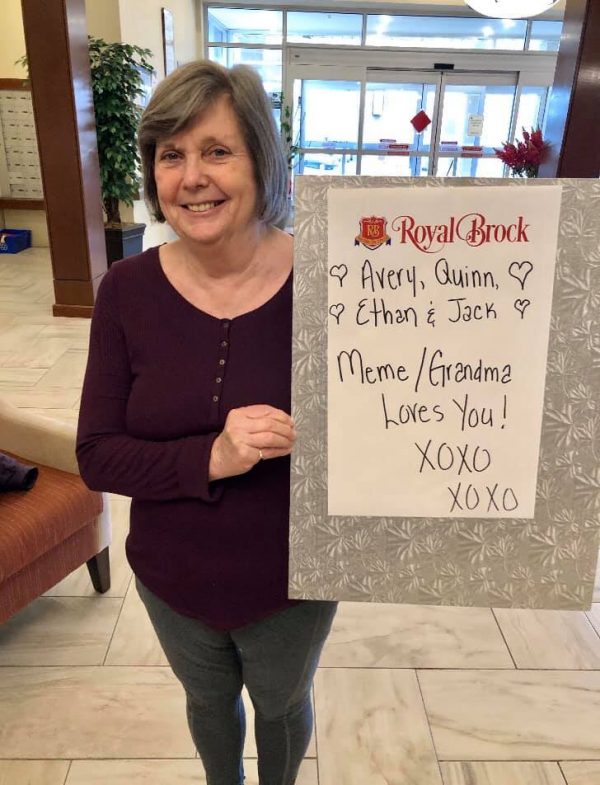 RB Royal Brock
♡ Avery, Quinn, ♡
♡ Ethan & Jack ♡
Meme/Grandma
Loves You!
XOXO
XOXO